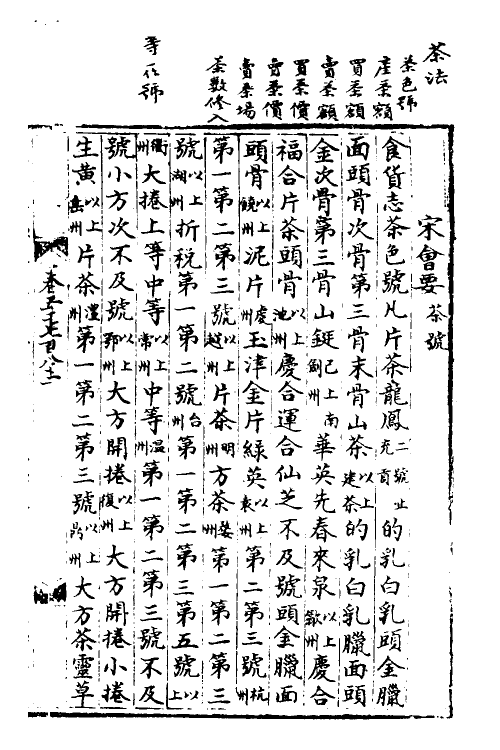 茶法
茶色號
產茶額
買茶額
賣茶額
買茶價
賣茶價
賣茶場
茶數修入
等仄號
宋會要 茶號
食貨志茶色號凡片茶龍鳳二號止充貢的乳白乳頭金臘
面頭骨次骨第三骨末骨山茶以上建茶的乳白乳臘面頭
金次骨第三骨山鋌已上南劍州華英先春來泉以上歙州慶合
福合片茶頭骨以上池州慶合運合仙芝不及號頭金臘面
頭骨以上饒州泥片虔州玉津金片綠英以上袁州第二第三號杭州
第一第二第三號以上越州片茶明州方茶婺州第一第二第三
號以上湖州折稅第一第二號台州第一第二第三第五號以上
衢州大捲上等中等以上常州中等溫州第一第二第三號不及
號小方次不及號以上鄂州大方開捲以上復州大方開捲小捲
生黃以上岳州片茶澧州第一第二第三號以上鼎州大方茶靈草
卷五千七百八十一